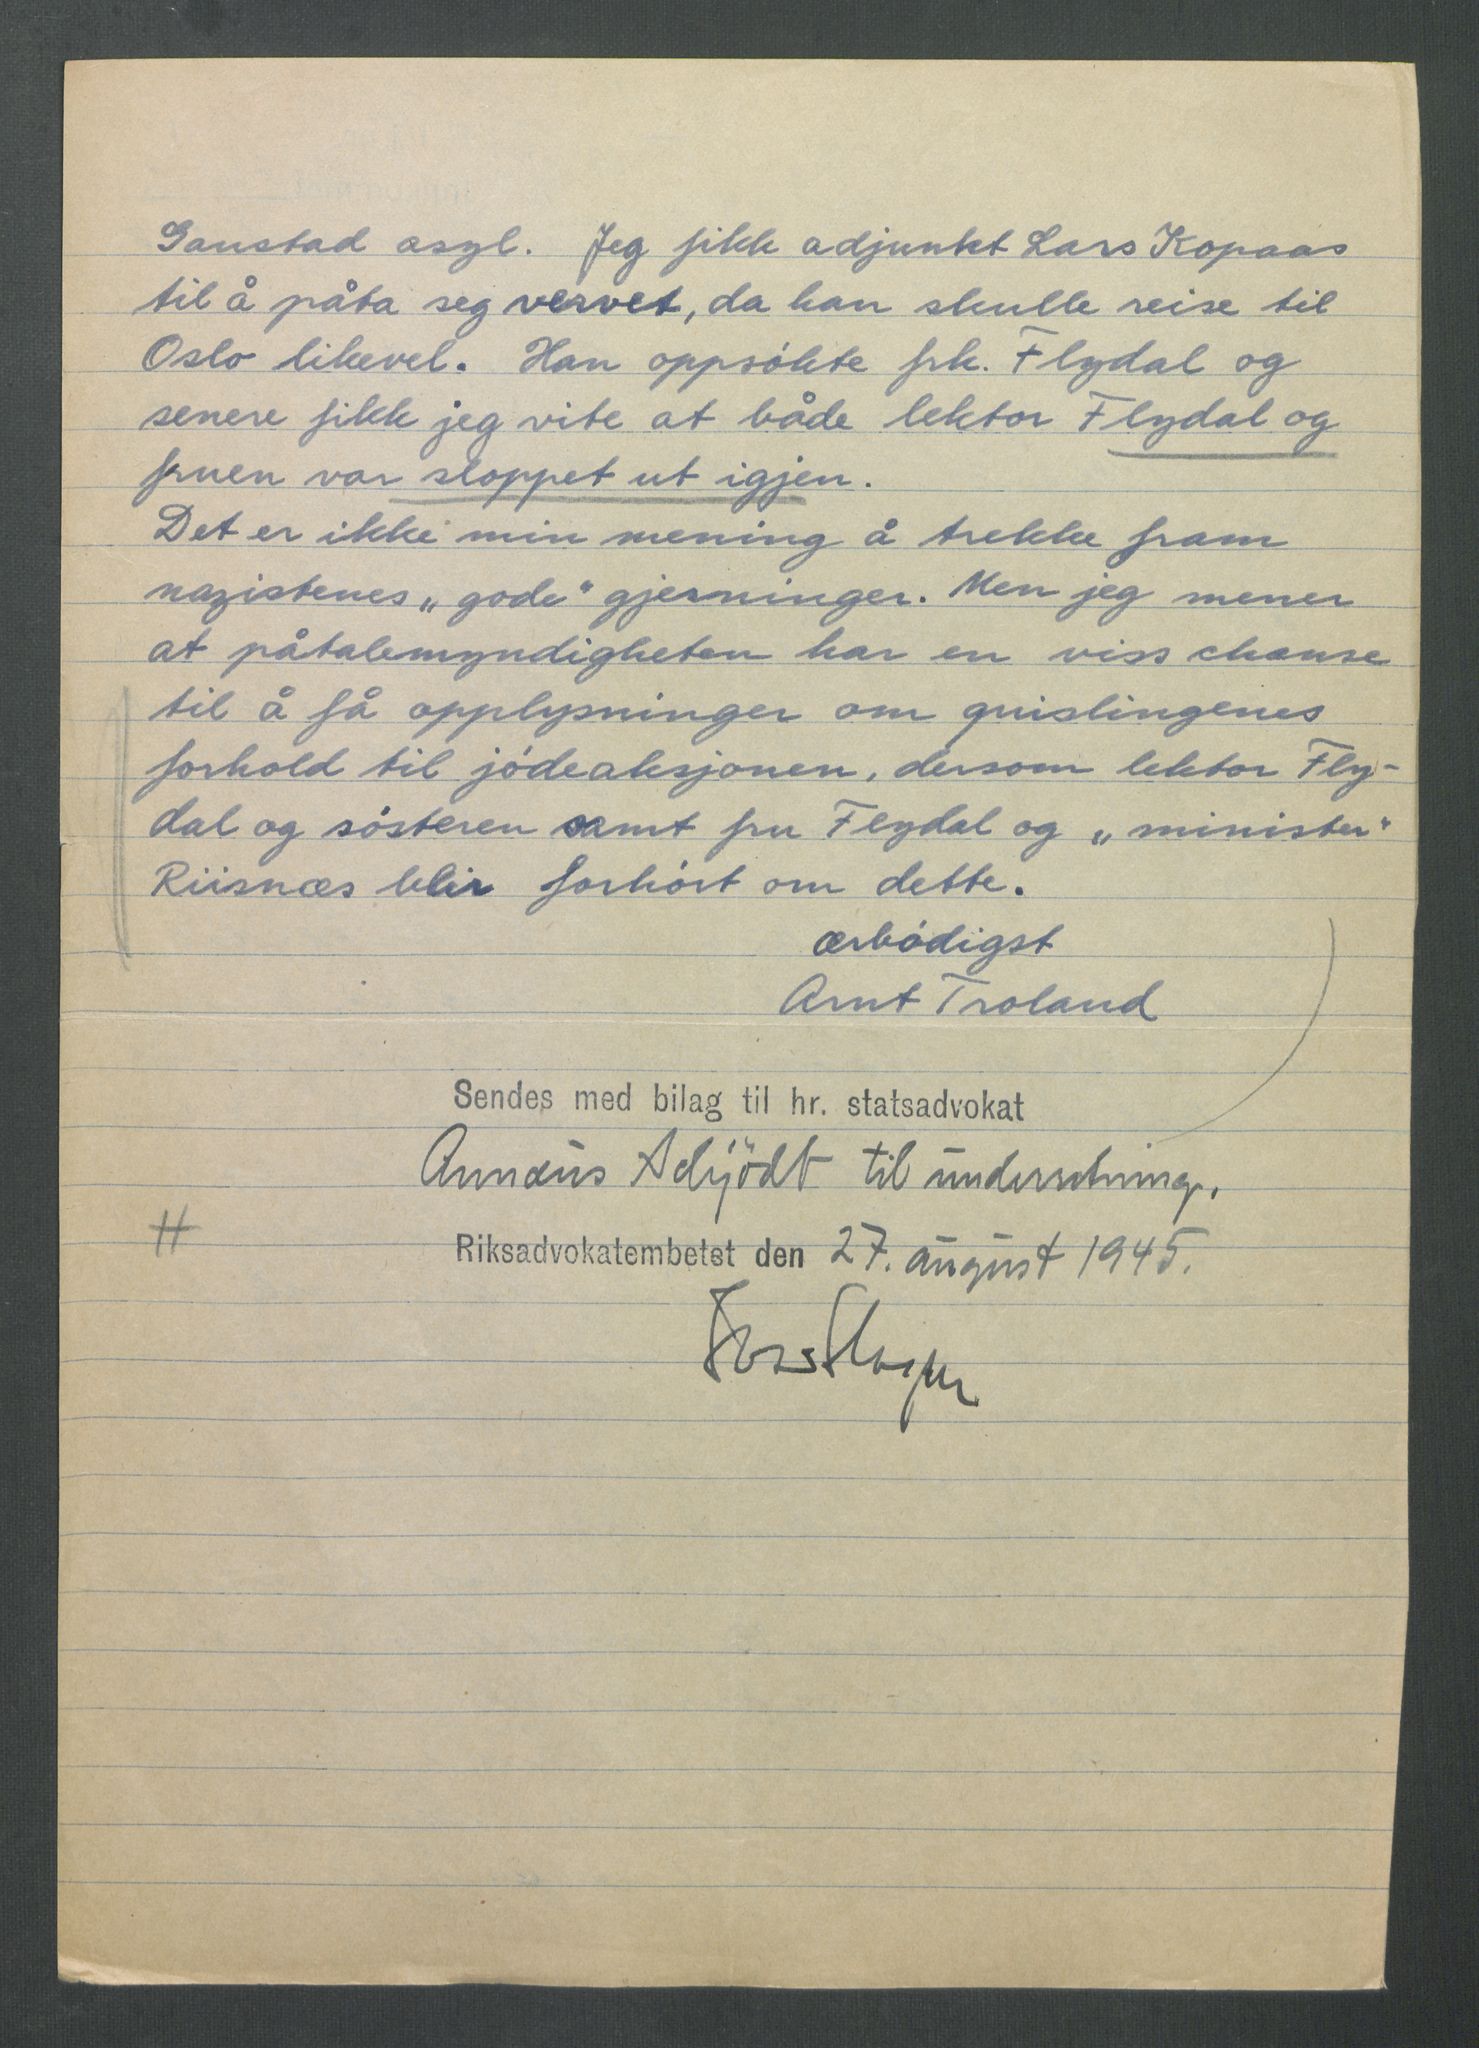 Gaustad asyl. Jeg fikk adjunkt Lars Kopaas
til å påta seg vervet, da han skulle reise til
Oslo likevel. Han oppsökte frk. Flydal og
senere fikk jeg vite at både lektor Flydal og
fruen var sloppet ut igjen.
Det er ikke min mening å trekke fram
nazistenes „gode“ gjerninger. Men jeg mener
at påtalemyndigheten har en viss chanse
til å få opplysninger om quislingenes
forhold til jödeaksjonen, dersom lektor Fly-
dal og sösteren samt fru Flydal og „minister“
Riisnæs blir forhört om dette.
ærbödigst
Arnt Troland
Sendes med bilag til hr. statsadvokat
Annæus Schjödt til underretning.
Riksadvokatembetet den 27. august 1945.